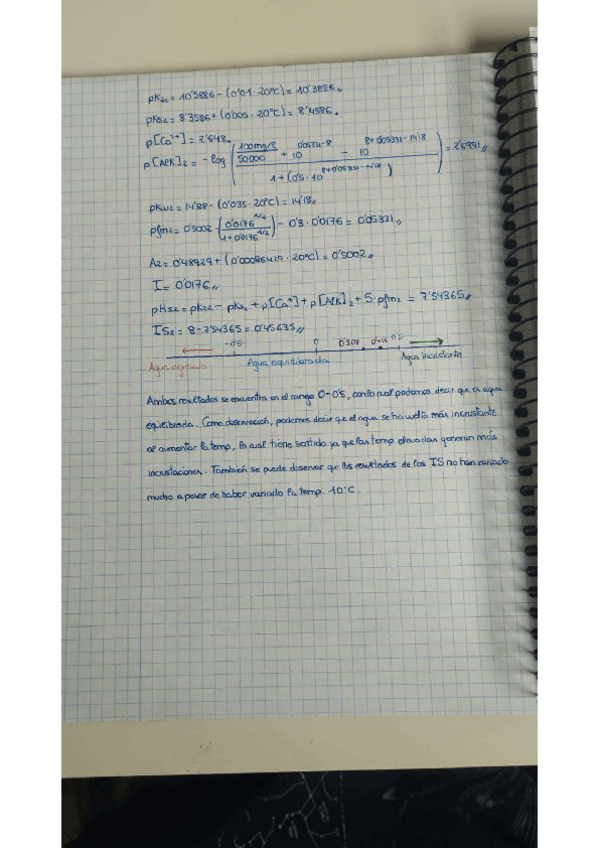 pK₂₂ = 10'5886 - (0'01 · 20ºC) = 10'3886 //
pKs₂ = 8'3586 + (0'005 · 20ºC) = 8'4586 //
p[Ca²⁺] = 2'548 //
p[ALK]₂ = -log ( (100mg/l / 50000 + 10^(0'05331-8) - 10^(8+0'05331-14'18)) / (1 + (0'5 · 10^(8+0'05331-10'38))) ) = 2'6991 //
pKw₂ = 14'88 - (0'035 · 20ºC) = 14'18 //
pfm₂ = 0'5002 · ( 0'0176^(1/2) / (1 + 0'0176^(1/2)) ) - 0'3 · 0'0176 = 0'05331 //
A₂ = 0'48929 + (0'00086429 · 20ºC) = 0'5002 //
I = 0'0176 //
pHs₂ = pK₂₂ - pKs₂ + p[Ca²⁺] + p[ALK]₂ + 5 · pfm₂ = 7'54365 //
IS₂ = 8 - 7'54365 = 0'45635 //
-0'5 0 0'308 0'5
Agua Agua equilibrada Agua incrustante
Ambos resultados se encuentra en el rango 0-0'5, con lo cual podemos decir que es agua
equilibrada. Como observación, podemos decir que el agua se ha vuelto más incrustante
al aumentar la temp, lo cual tiene sentido ya que las temp elevadas generan más
incrustaciones. También se puede observar que los resultados de los IS no han variado
mucho a pesar de haber variado la temp. 10ºC.